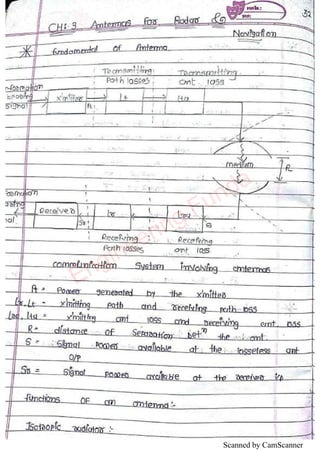 PAGE No.:
DATE:
32
CH:-3 Antennas For Radar &
Navigation
* fundamental of Antenna
Transmitting Transmitting
Path losses Ant. loss
information
bearing
signal
Xmitter
Pt
Lt
Lta
medium
R
Receiver
Sa
Lr
Lra
S
Receiving Receiving
Path losses ant. loss
communication System involving antennas
Pt = Power generated by the Xmitter
Lr, Lt = Xmitting path and receiving path loss
Lra, Lta = Xmitting ant loss and Receiving ant. loss
R = distance of Separation betn the ant.
S = Signal Power available at the lossless ant
O/P
Sa = Signal Power available at the receiver i/p
functions OF an antenna :-
Isotropic radiator :-
Engineering Funda
Scanned by CamScanner